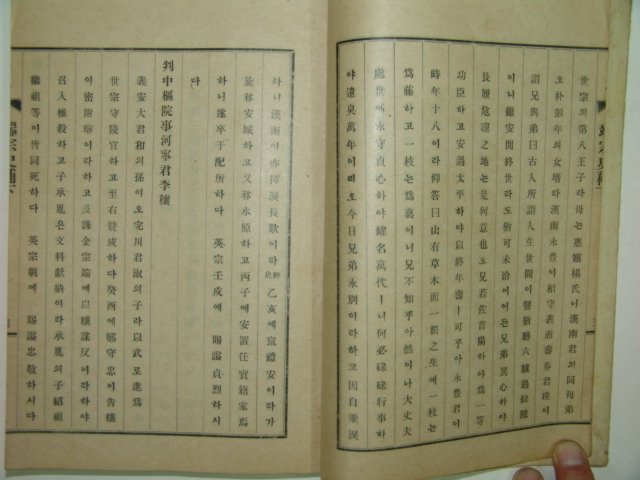 世宗의第八王子라母는惠嬪楊氏니漢南君의同母弟
오朴彭年의女壻라漢南永豊이相守義而壽春君玹이
謂兄與弟曰古人所謂人生世間이譬猶騁六驥過缺隙
이니雖安閒終世라도猶可未洽이어든兄弟異心하야
長履危凜之地는是何意也오兄若佐首陽하야爲一等
功臣하고安過太平하야以終年壽ㅣ可乎아永豊君이
時年十八이라仰答曰山有草木而一根之生에一枝는
爲藤하고一枝는爲葛이니兄不知乎아然이나大丈夫
處世에永守貞心하야耀名萬代ㅣ니何必碌碌行事하
야遺臭萬年이리오今日兄弟永別이라하고因自垂淚
하니漢南이亦揮淚長歎이라野史乙亥에竄禮安이라가
旋移安城하고又移水原하고丙子에安置任實籍家焉
하니遂卒于配所하다 英宗壬戌에 賜諡貞烈하시
다
判中樞院事河寧君李穰
義安大君和의孫이오完川君淑의子라以武로進爲
世宗守陵官하고至右贊成하다癸酉에鄭守忠이告穰
이密附瑢이라하고及誅金宗瑞에以穰謀反이라하야
召入椎殺하고子承胤은文科獻納이라承胤의子紹祖
繼祖等이皆同死하다 英宗朝에 賜諡忠敬하시다